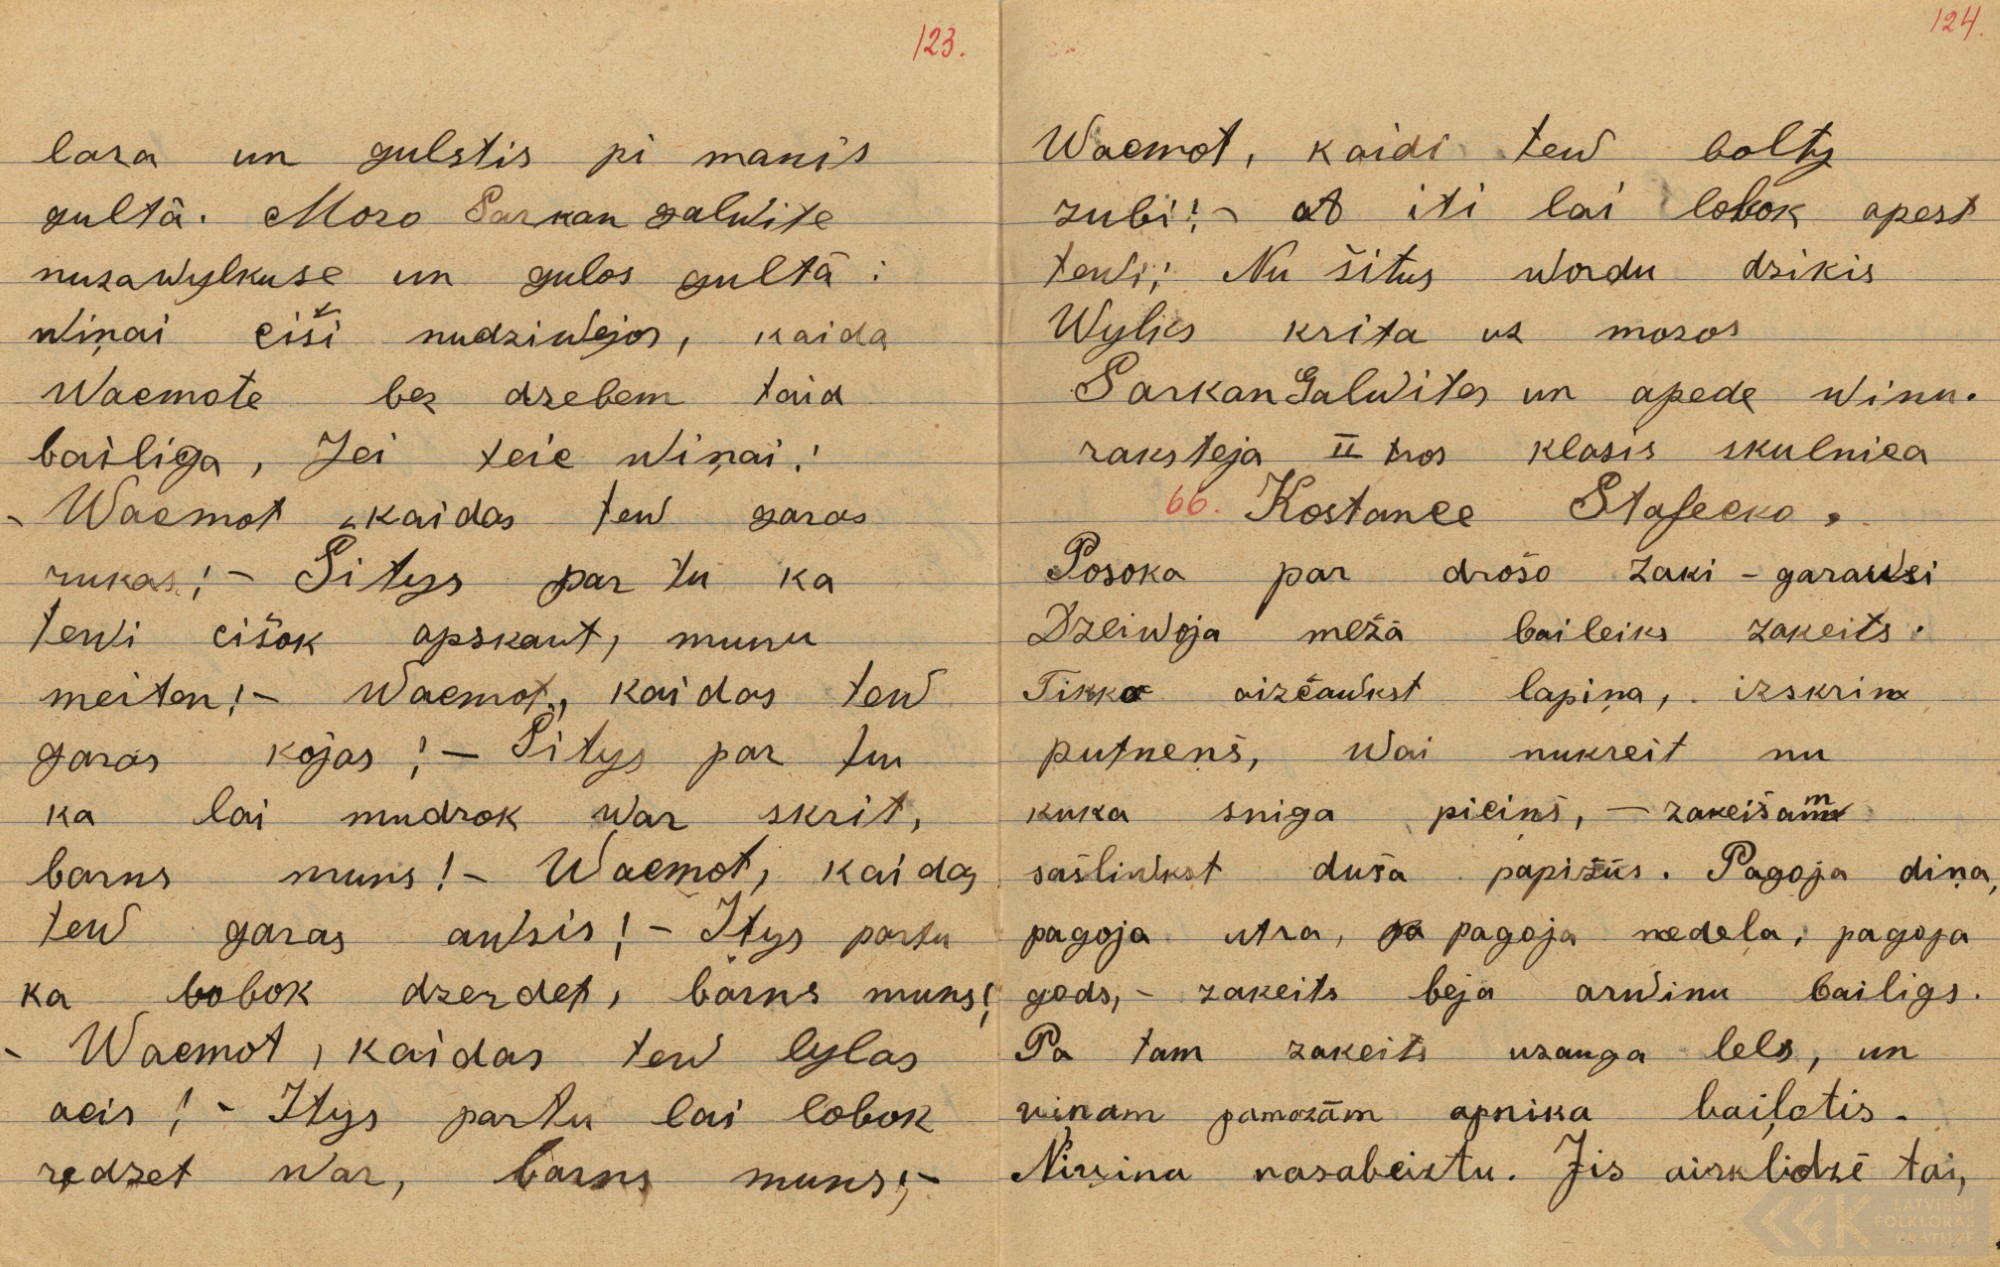 123.
lara un gulstis pi manis
gultâ. Mozo Sarkan galwite
nuzawylkuse un gulos gultā :
wiņai ciši nudziwejos, kaida
Waemote bez drebem taid
bailiga, Jei teic wiņai!
- Waemot kaidas tew garas
rukas! - Šitys par tu ka
tewi cišok apskaut, munu
meiten! - Waemot, kaidas tew
garas kojas! - Šitys par tu
ka lai mudrok war skrit,
barns muns! - Waemot, kaidas
tew garas ausis! - Itys partu
ka bobok dzerdet, barns muns!
- Waemot, kaidas tew lylas
acis! - Itys partu lai lobok
redzet war, barns muns! -
124.
Waemot, kaidi tew bolty
zubi! - At iti lai lobok apest
tewi! Nu šitus wordu dzikis
Wylks krita uz mozos
SarkanGalwites un apede winu.
raksteja II tros klasis skulnica
66. Kostance Stafecko.
Posoka par drošo zaki - garausi
Dzeiwoja mežā baileiks zakeits.
Tikko aizčaukst lapiņa, izskrin
putnenš, wai nukreit nu
kuka sniga picinš, - zakeišam
sašliukst duša papižūs. Pagoja diņa,
pagoja utra, pagoja nedeļa, pagoja
gods, - zakeits beja arwinu bailigs.
Pa tam zakeits uzauga lels, un
viņam pamozām apnika baiļotis.
Nivina nasabeiztu. Jis aizklidzē tai,
LATVIEŠU
FOLKLORAS
KRĀTUVE